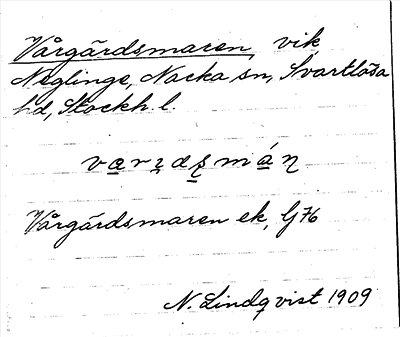 Vårgärdsmaren, vik
Neglinge, Nacka sn, Svartlösa
hd, Stockh. l.
Vårgärdsmaren ek, G76
N. Lindqvist 1909